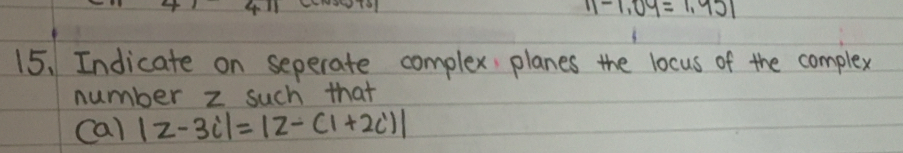 11-1.09=1.951
15. Indicate on seperate complex planes the locus of the complex
number z such that
(a) |z-3i|=|z-(1+2i)|